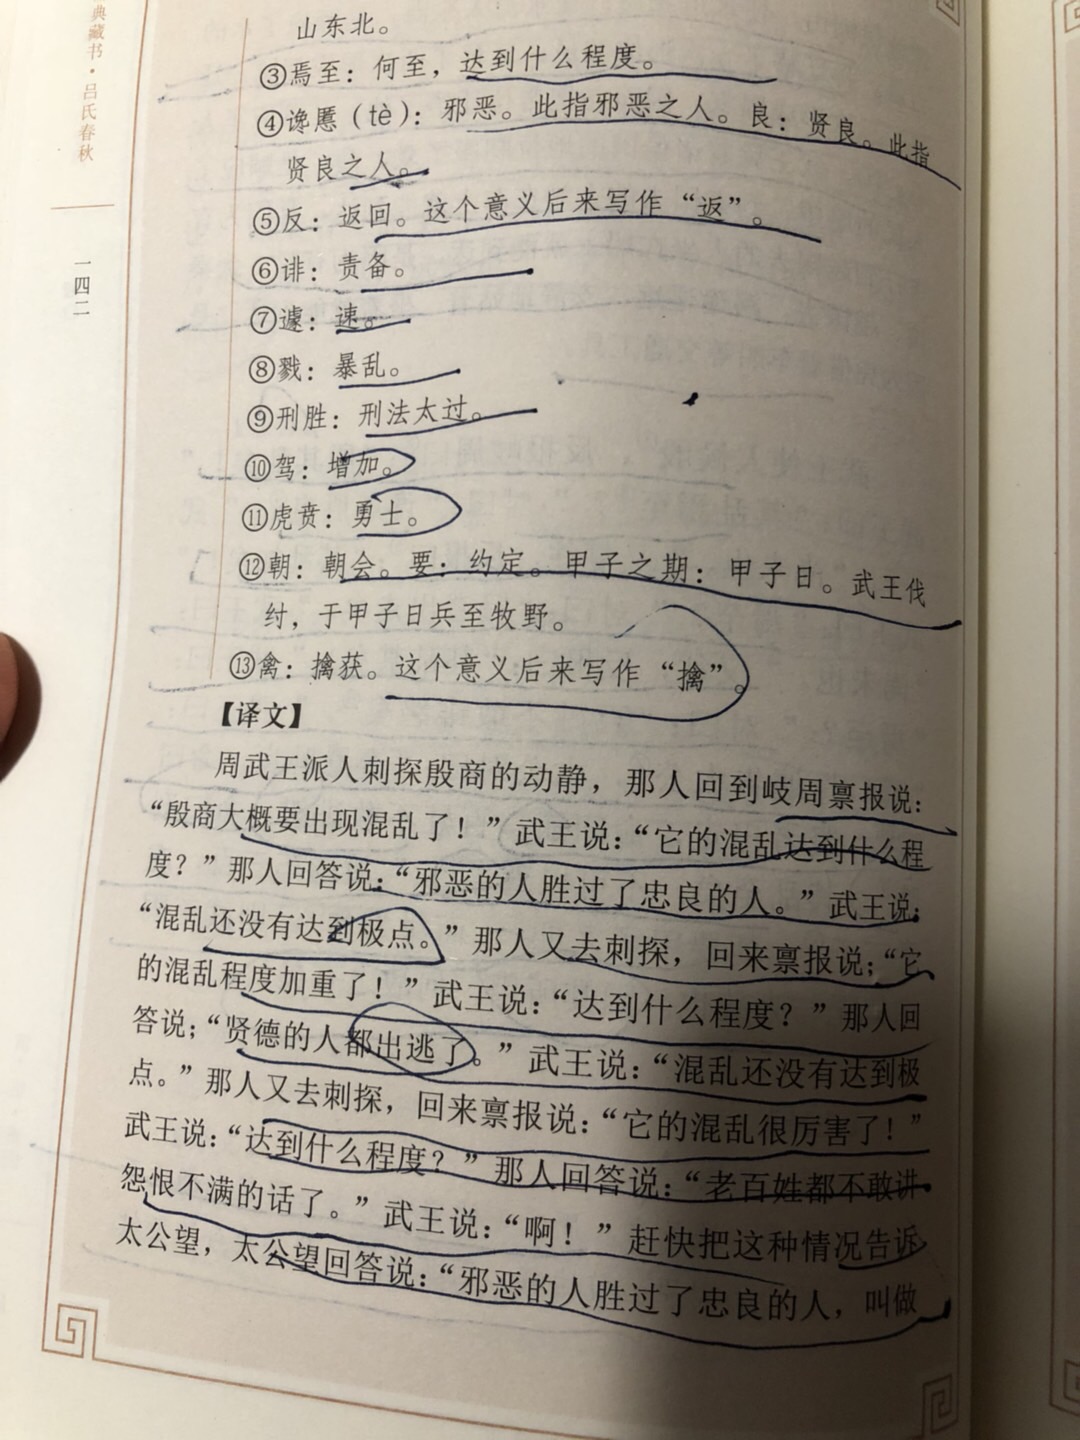 典藏书·吕氏春秋
一四二
山东北。
③焉至：何至，达到什么程度。
④谗慝（tè）：邪恶。此指邪恶之人。良：贤良。此指
贤良之人。
⑤反：返回。这个意义后来写作“返”。
⑥诽：责备。
⑦遽：速。
⑧戮：暴乱。
⑨刑胜：刑法太过。
⑩驾：增加。
⑪虎贲：勇士。
⑫朝：朝会。要：约定。甲子之期：甲子日。武王伐
纣，于甲子日兵至牧野。
⑬禽：擒获。这个意义后来写作“擒”。
【译文】
周武王派人刺探殷商的动静，那人回到岐周禀报说：
“殷商大概要出现混乱了！”武王说：“它的混乱达到什么程
度？”那人回答说：“邪恶的人胜过了忠良的人。”武王说：
“混乱还没有达到极点。”那人又去刺探，回来禀报说：“它
的混乱程度加重了！”武王说：“达到什么程度？”那人回
答说：“贤德的人都出逃了。”武王说：“混乱还没有达到极
点。”那人又去刺探，回来禀报说：“它的混乱很厉害了！”
武王说：“达到什么程度？”那人回答说：“老百姓都不敢讲
怨恨不满的话了。”武王说：“啊！”赶快把这种情况告诉
太公望，太公望回答说：“邪恶的人胜过了忠良的人，叫做